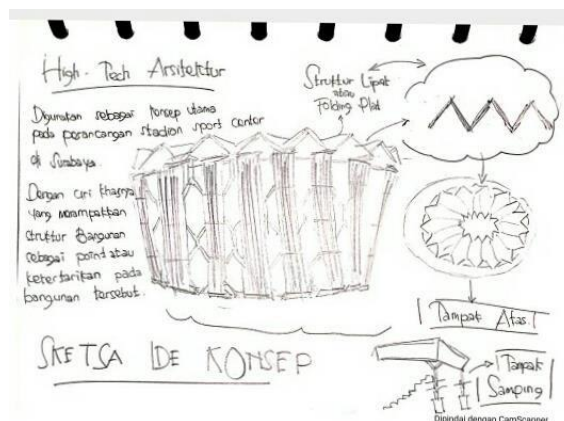 High-Tech Arsitektur
Digunakan sebagai konsep utama
pada perancangan stadion sport center
di Surabaya.
Dengan ciri khasnya
yang menampakkan
struktur Bangunan
sebagai point atau
ketertarikan pada
bangunan tersebut.
Struktur Lipat
atau
Folding Plat
Tampak Atas
SKETSA IDE KONSEP
Tampak
Samping
Dipindai dengan CamScanner